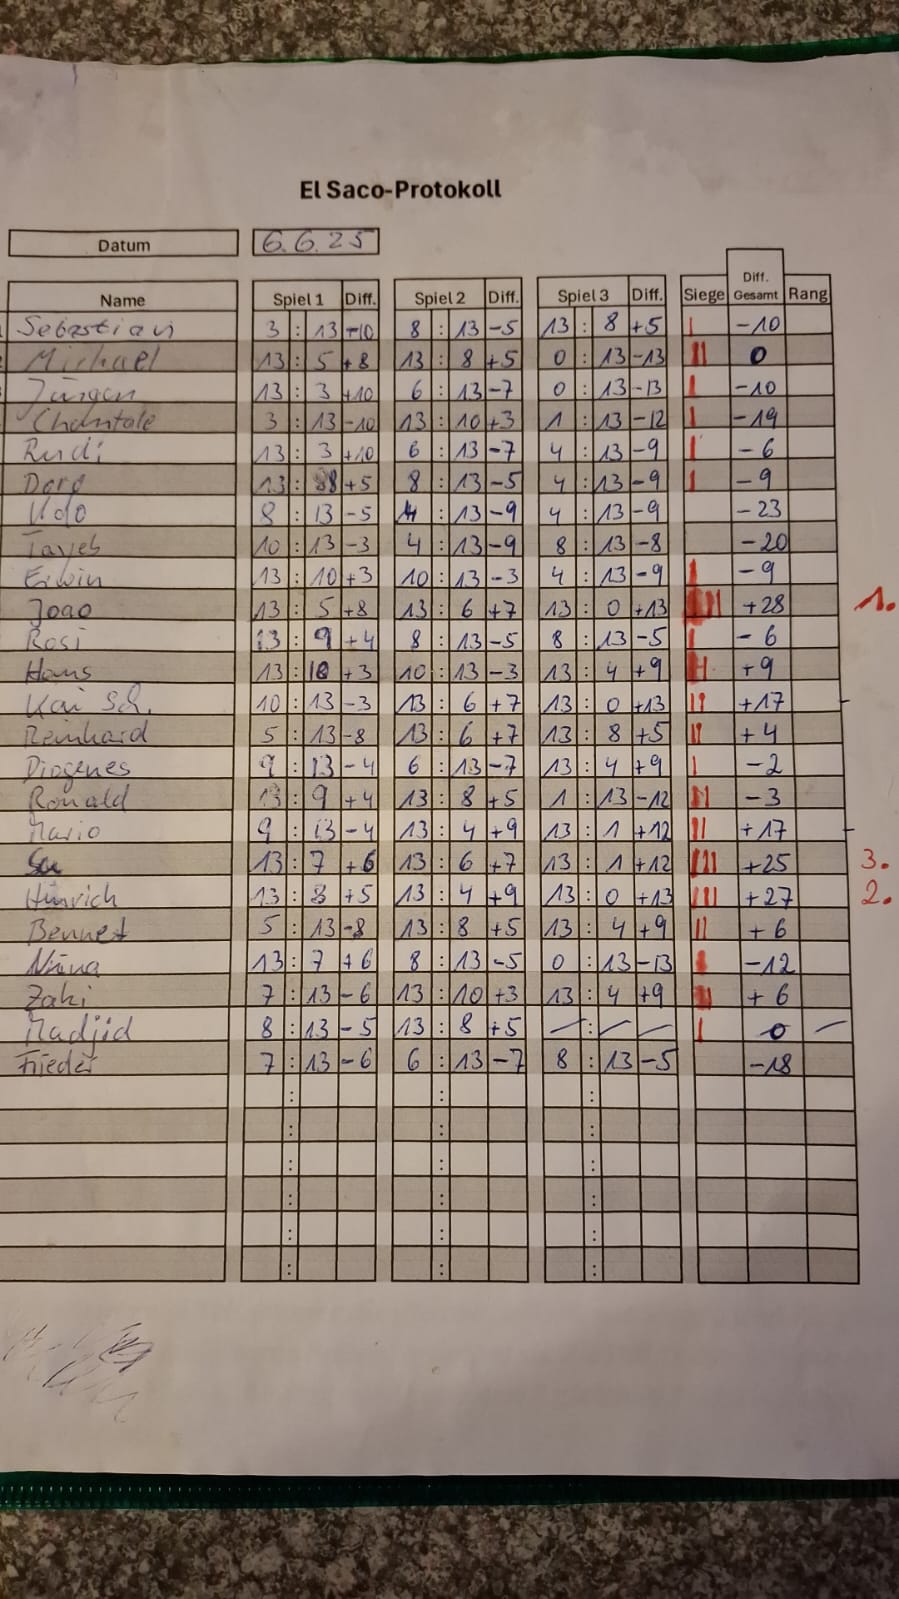 El Saco-Protokoll
Datum 6.6.25
Name Spiel 1 Diff. Spiel 2 Diff. Spiel 3 Diff. Siege Diff. Gesamt Rang
Sebastian 3 : 13 -10 8 : 13 -5 13 : 8 +5 | -10
Michael 13 : 5 +8 13 : 8 +5 0 : 13 -13 || 0
Jürgen 13 : 3 +10 6 : 13 -7 0 : 13 -13 | -10
Chantale 3 : 13 -10 13 : 10 +3 1 : 13 -12 | -19
Rudi 13 : 3 +10 6 : 13 -7 4 : 13 -9 | -6
Doro 13 : 8 +5 8 : 13 -5 4 : 13 -9 | -9
Udo 8 : 13 -5 4 : 13 -9 4 : 13 -9 -23
Tayeb 10 : 13 -3 4 : 13 -9 8 : 13 -8 -20
Erwin 13 : 10 +3 10 : 13 -3 4 : 13 -9 | -9
Joao 13 : 5 +8 13 : 6 +7 13 : 0 +13 ||| +28 1.
Rosi 13 : 9 +4 8 : 13 -5 8 : 13 -5 | -6
Hans 13 : 10 +3 10 : 13 -3 13 : 4 +9 || +9
Kai Sch. 10 : 13 -3 13 : 6 +7 13 : 0 +13 || +17 -
Reinhard 5 : 13 -8 13 : 6 +7 13 : 8 +5 || +4
Diogenes 9 : 13 -4 6 : 13 -7 13 : 4 +9 | -2
Ronald 13 : 9 +4 13 : 8 +5 1 : 13 -12 || -3
Mario 9 : 13 -4 13 : 4 +9 13 : 1 +12 || +17 -
13 : 7 +6 13 : 6 +7 13 : 1 +12 ||| +25 3.
Hinrich 13 : 8 +5 13 : 4 +9 13 : 0 +13 ||| +27 2.
Bennet 5 : 13 -8 13 : 8 +5 13 : 4 +9 || +6
Nina 13 : 7 +6 8 : 13 -5 0 : 13 -13 | -12
Zaki 7 : 13 -6 13 : 10 +3 13 : 4 +9 || +6
Madjid 8 : 13 -5 13 : 8 +5 - : - - | 0 -
Frieder 7 : 13 -6 6 : 13 -7 8 : 13 -5 -18